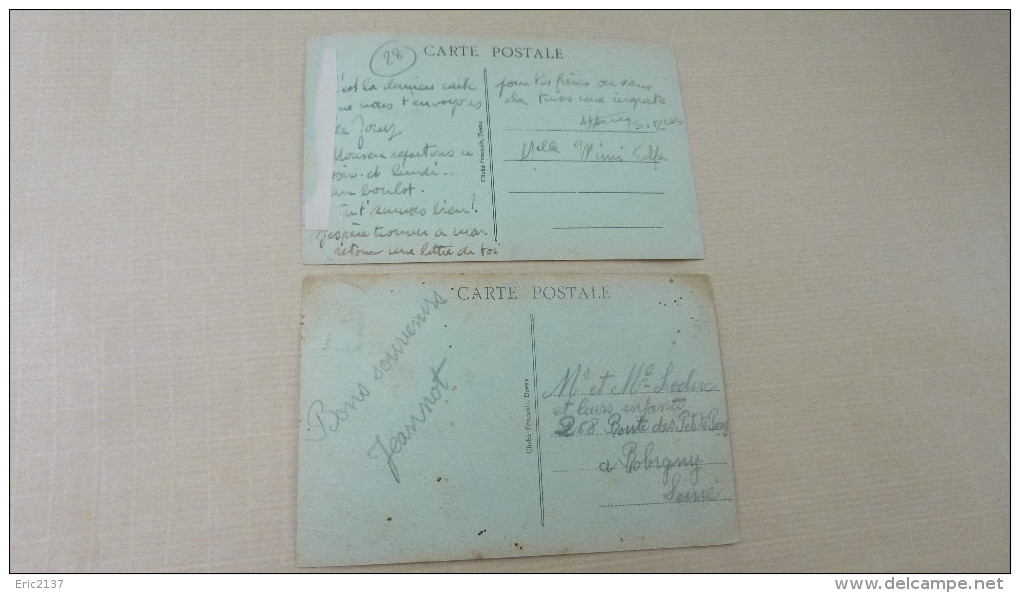 28
CARTE POSTALE
c'est la dernière carte
que nous t'envoyons
de Jouy
repartons ce
soir et lundi..
au boulot.
t'ennuies bien!
J'espère trouver a mon
retour une lettre de toi
pour tes frères ou sans
une
Cliché Foucault, Dreux
Melle Mimi
CARTE POSTALE
Bons souvenirs
Jeannot
Cliché Foucault, Dreux
Mr et Me Leclerc
et leurs enfants
268 Route des Petits Ponts
a Bobigny
Seine
Eric2137
www.delcampe.net